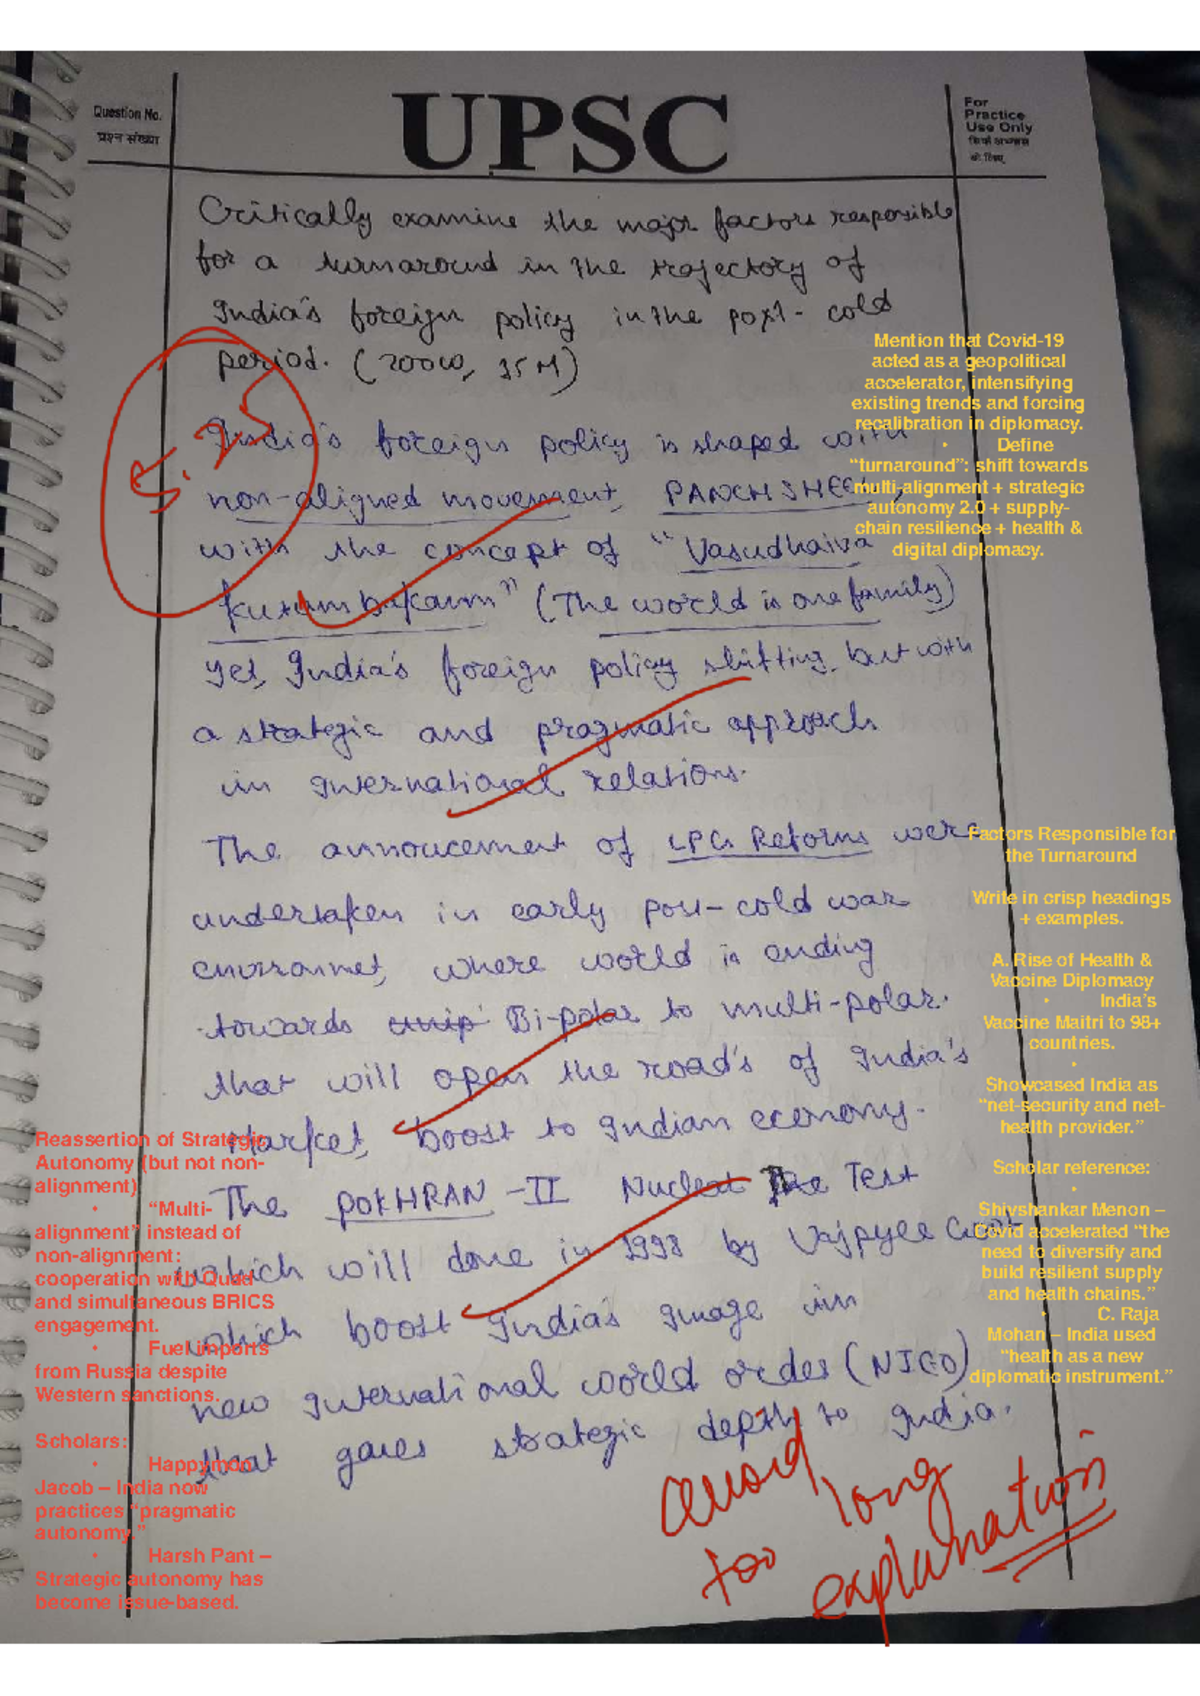 Question No.
प्रश्न संख्या
UPSC
For
Practice
Use Only
Critically examine the major factors responsible
for a turnaround in the trajectory of
India's foreign policy in the post-cold
period. (200w, 15M)
5.25
India's foreign policy is shaped with
non-aligned movement, PANCHSHEEL,
with the concept of "Vasudhaiva
Kutumbakam" (The world is one family)
Yet, India's foreign policy shifting, but with
a strategic and pragmatic approach
in International relations.
The annoucement of LPG Reforms were
undertaken in early post-cold war
environmet, where world is ending
towards Bi-polar to multi-polar.
that will open the road's of India's
Market, boost to Indian economy.
The POKHRAN-II Nuclear Test
which will done in 1998 by Vajpyee Govt
which boost India's Image in
new International world order (NIEO)
that gaves strategic depth to India.
Avoid long
too
explanation
Mention that Covid-19
acted as a geopolitical
accelerator, intensifying
existing trends and forcing
recalibration in diplomacy.
• Define
“turnaround”: shift towards
multi-alignment + strategic
autonomy 2.0 + supply-
chain resilience + health &
digital diplomacy.
Factors Responsible for
the Turnaround
Write in crisp headings
+ examples.
A. Rise of Health &
Vaccine Diplomacy
• India’s
Vaccine Maitri to 98+
countries.
•
Showcased India as
“net-security and net-
health provider.”
Scholar reference:
•
Shivshankar Menon –
Covid accelerated “the
need to diversify and
build resilient supply
and health chains.”
• C. Raja
Mohan – India used
“health as a new
diplomatic instrument.”
Reassertion of Strategic
Autonomy (but not non-
alignment)
• “Multi-
alignment” instead of
non-alignment:
cooperation with Quad
and simultaneous BRICS
engagement.
• Fuel imports
from Russia despite
Western sanctions.
Scholars:
• Happymon
Jacob – India now
practices “pragmatic
autonomy.”
• Harsh Pant –
Strategic autonomy has
become issue-based.